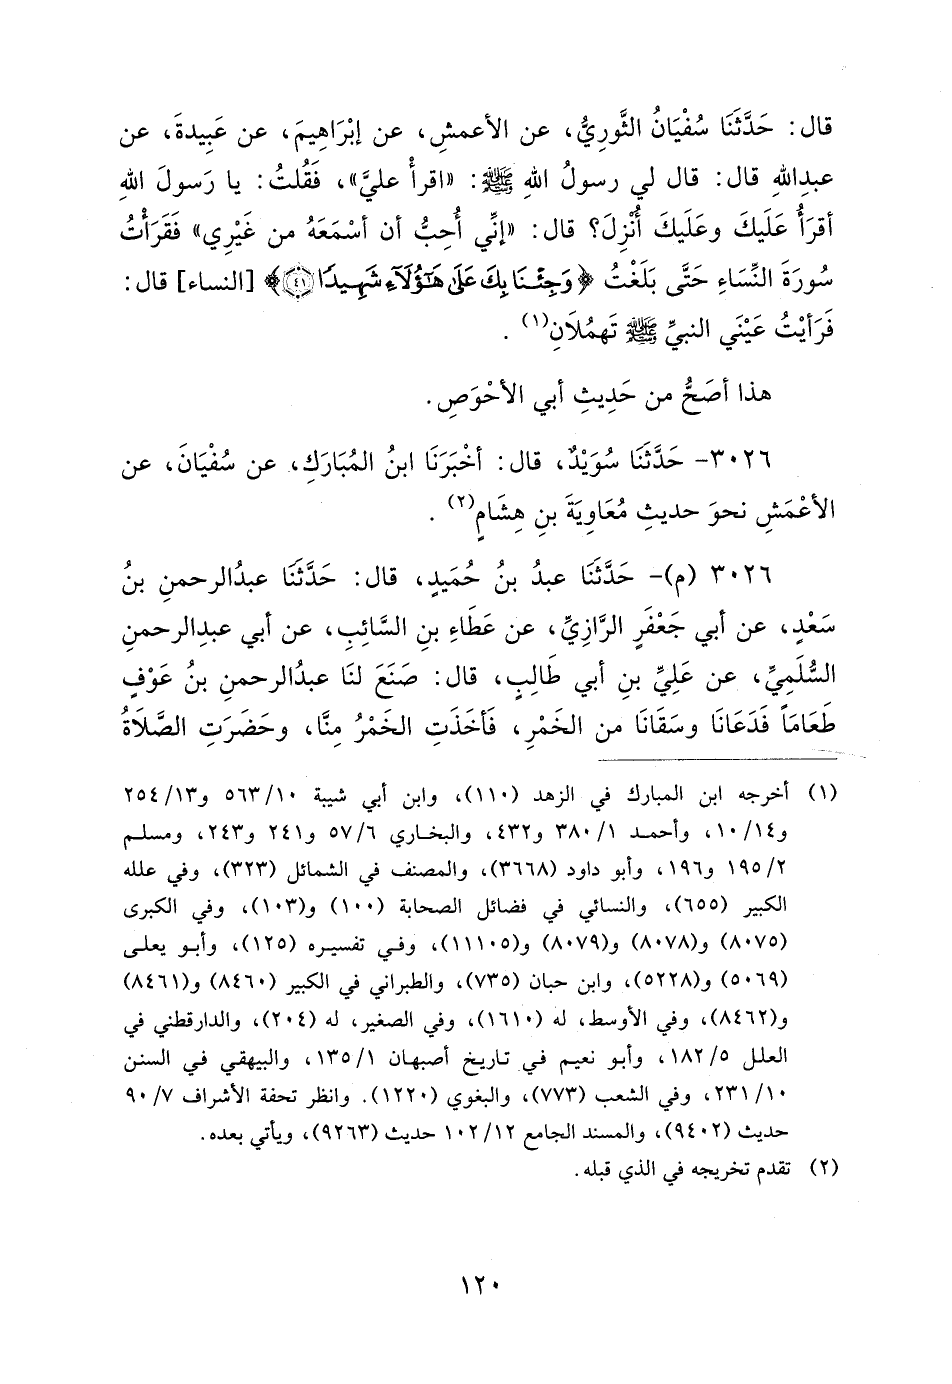 قال: حَدَّثَنَا سُفْيَانُ الثَّوريُّ، عن الأعمشِ، عن إبْرَاهِيمَ، عن عَبِيدةَ، عن
عبدِاللهِ قال: قال لي رسولُ اللهِ ﷺ: «اقرأْ عليَّ»، فَقُلتُ: يا رَسولَ اللهِ
أقرَأُ عَلَيكَ وعَلَيكَ أُنْزِلَ؟ قال: «إنِّي أُحِبُّ أن أسْمَعَهُ من غَيْرِي» فَقَرَأْتُ
سُورَةَ النِّسَاءِ حَتَّى بَلَغْتُ ﴿وَجِئْنَا بِكَ عَلَىٰ هَٰٓؤُلَآءِ شَهِيدًا ٤١﴾ [النساء] قال:
فَرَأيْتُ عَيْنَي النبيِّ ﷺ تَهمُلاَنِ(١).
هذا أصَحُّ من حَدِيثِ أبي الأحْوَصِ.
٣٠٢٦- حَدَّثَنَا سُوَيْدٌ، قال: أخْبَرَنَا ابنُ المُبَارَكِ، عن سُفْيَانَ، عن
الأعْمَشِ نحوَ حديثِ مُعَاوِيَةَ بنِ هِشَامٍ(٢).
٣٠٢٦ (م)- حَدَّثَنَا عبدُ بنُ حُمَيدٍ، قال: حَدَّثَنَا عبدُالرحمنِ بنُ
سَعْدٍ، عن أبي جَعْفَرٍ الرَّازِيِّ، عن عَطَاءِ بنِ السَّائِبِ، عن أبي عبدِالرحمنِ
السُّلَمِيِّ، عن عَلِيِّ بنِ أبي طَالِبٍ، قال: صَنَعَ لنَا عبدُالرحمنِ بنُ عَوْفٍ
طَعَاماً فَدَعَانَا وسَقَانَا من الخَمْرِ، فَأخَذَتِ الخَمْرُ مِنَّا، وحَضَرَتِ الصَّلَاةُ
(١) أخرجه ابن المبارك في الزهد (١١٠)، وابن أبي شيبة ١٠/ ٥٦٣ و١٣/ ٢٥٤
و١٤/ ١٠، وأحمد ١/ ٣٨٠ و٤٣٢، والبخاري ٦/ ٥٧ و٢٤١ و٢٤٣، ومسلم
٢/ ١٩٥ و١٩٦، وأبو داود (٣٦٦٨)، والمصنف في الشمائل (٣٢٣)، وفي علله
الكبير (٦٥٥)، والنسائي في فضائل الصحابة (١٠٠) و(١٠٣)، وفي الكبرى
(٨٠٧٥) و(٨٠٧٨) و(٨٠٧٩) و(١١١٠٥)، وفي تفسيره (١٢٥)، وأبو يعلى
(٥٠٦٩) و(٥٢٢٨)، وابن حبان (٧٣٥)، والطبراني في الكبير (٨٤٦٠) و(٨٤٦١)
و(٨٤٦٢)، وفي الأوسط، له (١٦١٠)، وفي الصغير، له (٢٠٤)، والدارقطني في
العلل ٥/ ١٨٢، وأبو نعيم في تاريخ أصبهان ١/ ١٣٥، والبيهقي في السنن
١٠/ ٢٣١، وفي الشعب (٧٧٣)، والبغوي (١٢٢٠). وانظر تحفة الأشراف ٧/ ٩٠
حديث (٩٤٠٢)، والمسند الجامع ١٢/ ١٠٢ حديث (٩٢٦٣)، ويأتي بعده.
(٢) تقدم تخريجه في الذي قبله.
١٢٠